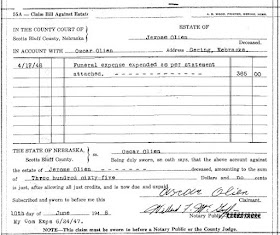 15A—Claim Bill Against Estate
IN THE COUNTY COURT OF
Scotts Bluff County, Nebraska
ESTATE OF
Jerome Olien
Deceased.
IN ACCOUNT WITH Oscar Olien Address Gering, Nebraska.
4/17/48 Funeral expense expended as per statement
attached. 365 00
THE STATE OF NEBRASKA,
Scotts Bluff County.
Oscar Olien
Being duly sworn, so says, that the above account against
the estate of Jerome Olien deceased, amounting to the sum
of Three hundred sixty-five Dollars and no cents
is just, after allowing all just credits, and is now due and unpaid
Oscar Olien
Subscribed and sworn to before me this
10th day of June 194 8.
Notary Public
My Com Exps 6/24/47.
NOTE—This claim must be sworn to before a Notary Public or the County Judge.